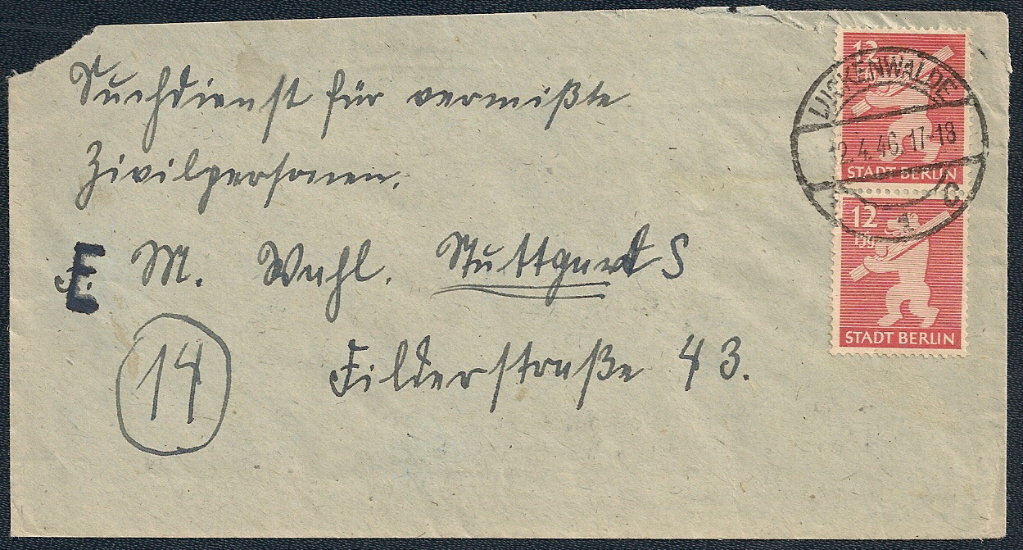 Suchdienst für vermißte
Zivilpersonen.
E M. Wahl. Stuttgart S
Filderstraße 43.
14
12
STADT BERLIN
LUCKENWALDE
2.4.46.17-18
C
12
STADT BERLIN